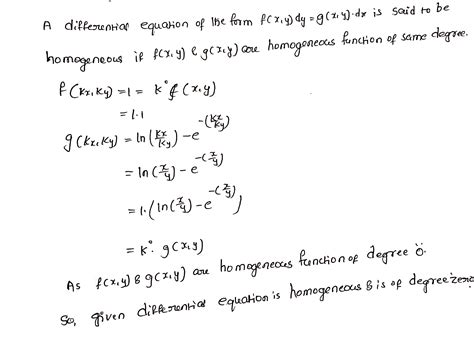 A differential equation of the form f(x,y)dy = g(x,y).dx is said to be
homogeneous if f(x,y) & g(x,y) are homogeneous function of same degree.
f(kx,ky) = 1 = k° f(x,y)
= 1.1
g(kx,ky) = ln(kx/ky) - e^-(kx/ky)
= ln(x/y) - e^-(x/y)
= 1.(ln(x/y) - e^-(x/y))
= k°. g(x,y)
As f(x,y) & g(x,y) are homogeneous function of degree 0.
So, given differential equation is homogeneous & is of degree zero